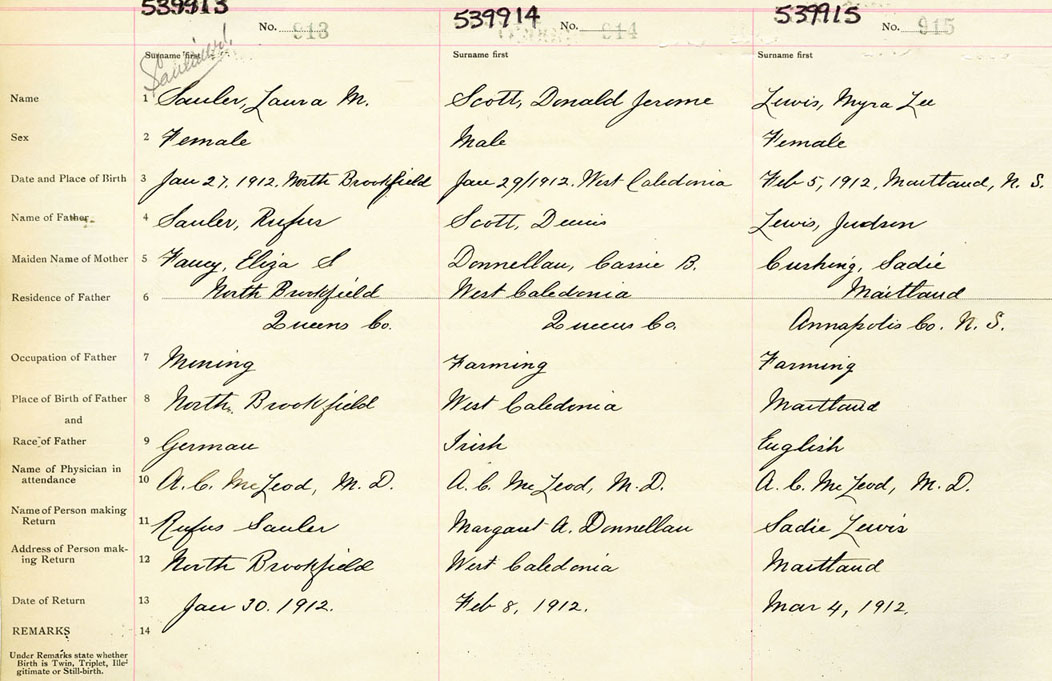 539913 539914 539915
No. 913 No. 914 No. 915
Surname first Surname first Surname first
Name 1 Sauler, Laura M. Scott, Donald Jerome Lewis, Myra Lee
Sex 2 Female Male Female
Date and Place of Birth 3 Jan 27, 1912. North Brookfield Jan 29/1912. West Caledonia Feb 5, 1912, Maitland, N. S.
Name of Father 4 Sauler, Rufus Scott, Denis Lewis, Judson
Maiden Name of Mother 5 Fancy, Eliza S Donnellan, Cassie B. Cushing, Sadie
Residence of Father 6 North Brookfield West Caledonia Maitland
Queens Co. Queens Co. Annapolis Co. N. S.
Occupation of Father 7 Mining Farming Farming
Place of Birth of Father 8 North Brookfield West Caledonia Maitland
and
Race of Father 9 German Irish English
Name of Physician in
attendance 10 A. C. McLeod, M. D. A. C. McLeod, M. D. A. C. McLeod, M. D.
Name of Person making
Return 11 Rufus Sauler Margaret A. Donnellan Sadie Lewis
Address of Person mak-
ing Return 12 North Brookfield West Caledonia Maitland
Date of Return 13 Jan 30. 1912. Feb 8, 1912. Mar 4, 1912.
REMARKS 14
Under Remarks state whether
Birth is Twin, Triplet, Ille-
gitimate or Still-birth.